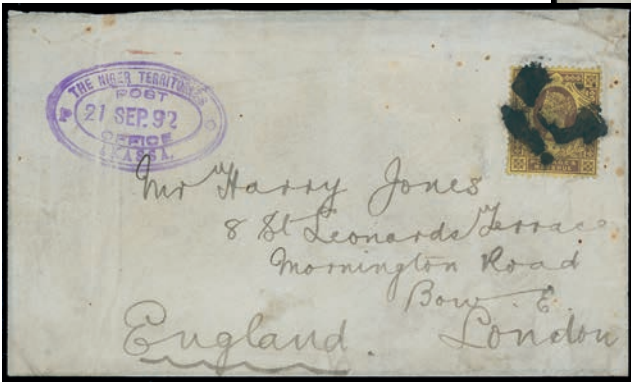 THE NIGER TERRITORIES
POST
21 SEP. 92
OFFICE
AKASSA.
Mr Harry Jones
8 St Leonards Terrace
Mornington Road
Bow. E.
England. London